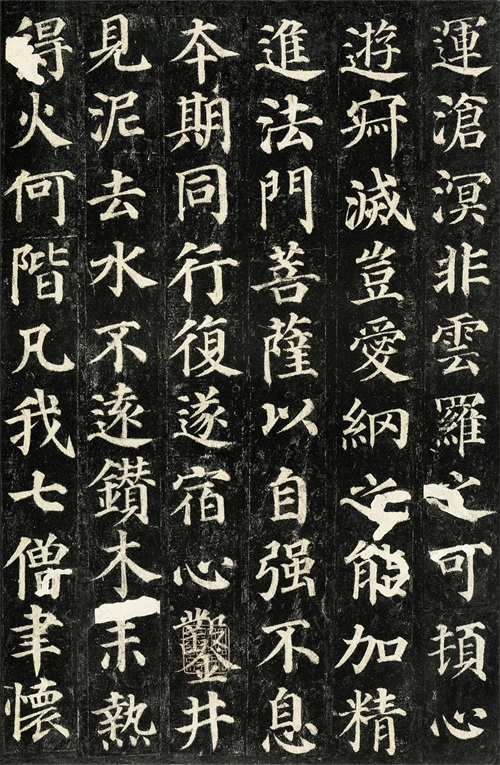 運滄溟非雲羅之可頓心
遊寂滅豈愛網之能加精
進法門菩薩以自强不息
夲期同行復遂宿心鑿井
見泥去水不遠鑽木未熱
得火何階凡我七僧聿懷